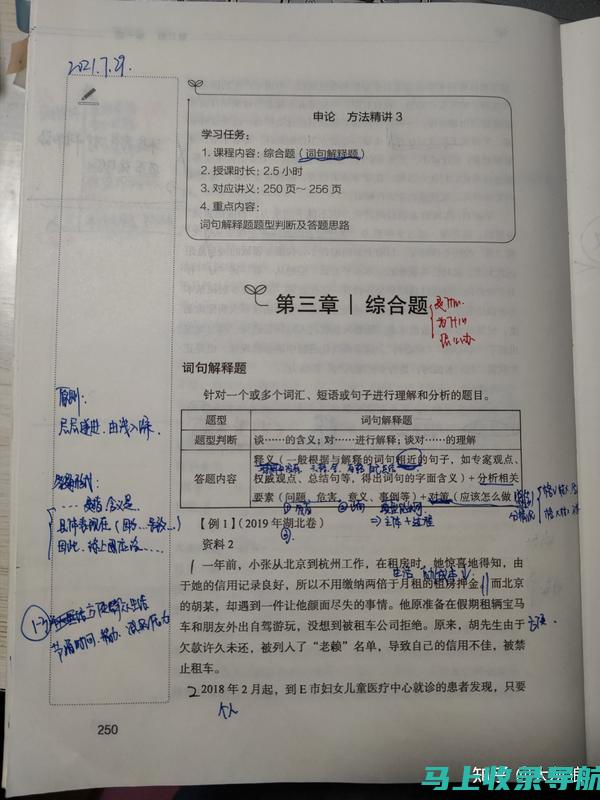 2021.7.29.
申论 方法精讲3
学习任务：
1. 课程内容：综合题（词句解释题）
2. 授课时长：2.5 小时
3. 对应讲义：250 页～ 256 页
4. 重点内容：
词句解释题题型判断及答题思路
第三章｜综合题
是什么
为什么
怎么办
词句解释题
针对一个或多个词汇、短语或句子进行理解和分析的题目。
题型 词句解释题
题型判断 谈……的含义；对……进行解释；谈对……的理解
答题内容 释义（一般根据与解释的词句相近的句子，如专家观点、
权威观点、总结句等，得出词句的字面含义）+ 分析相关
要素（问题、危害、意义、事例等）+ 对策（应该怎么做）
原则：
层层递进，由浅入深
⇒ 主体＋过程
【例 1】（2019 年湖北卷）
资料 2
一年前，小张从北京到杭州工作，在租房时，她惊喜地得知，由
于她的信用记录良好，所以不用缴纳两倍于月租的租房押金。而北京
的胡某，却遇到一件让他颜面尽失的事情。他原准备在假期租辆宝马
车和朋友外出自驾游玩，没想到被租车公司拒绝。原来，胡先生由于
欠款许久未还，被列入了“老赖”名单，导致自己的信用不佳，被禁
止租车。
2 2018 年 2 月起，到 E 市妇女儿童医疗中心就诊的患者发现，只要
个人
250
知乎
马上收录导航